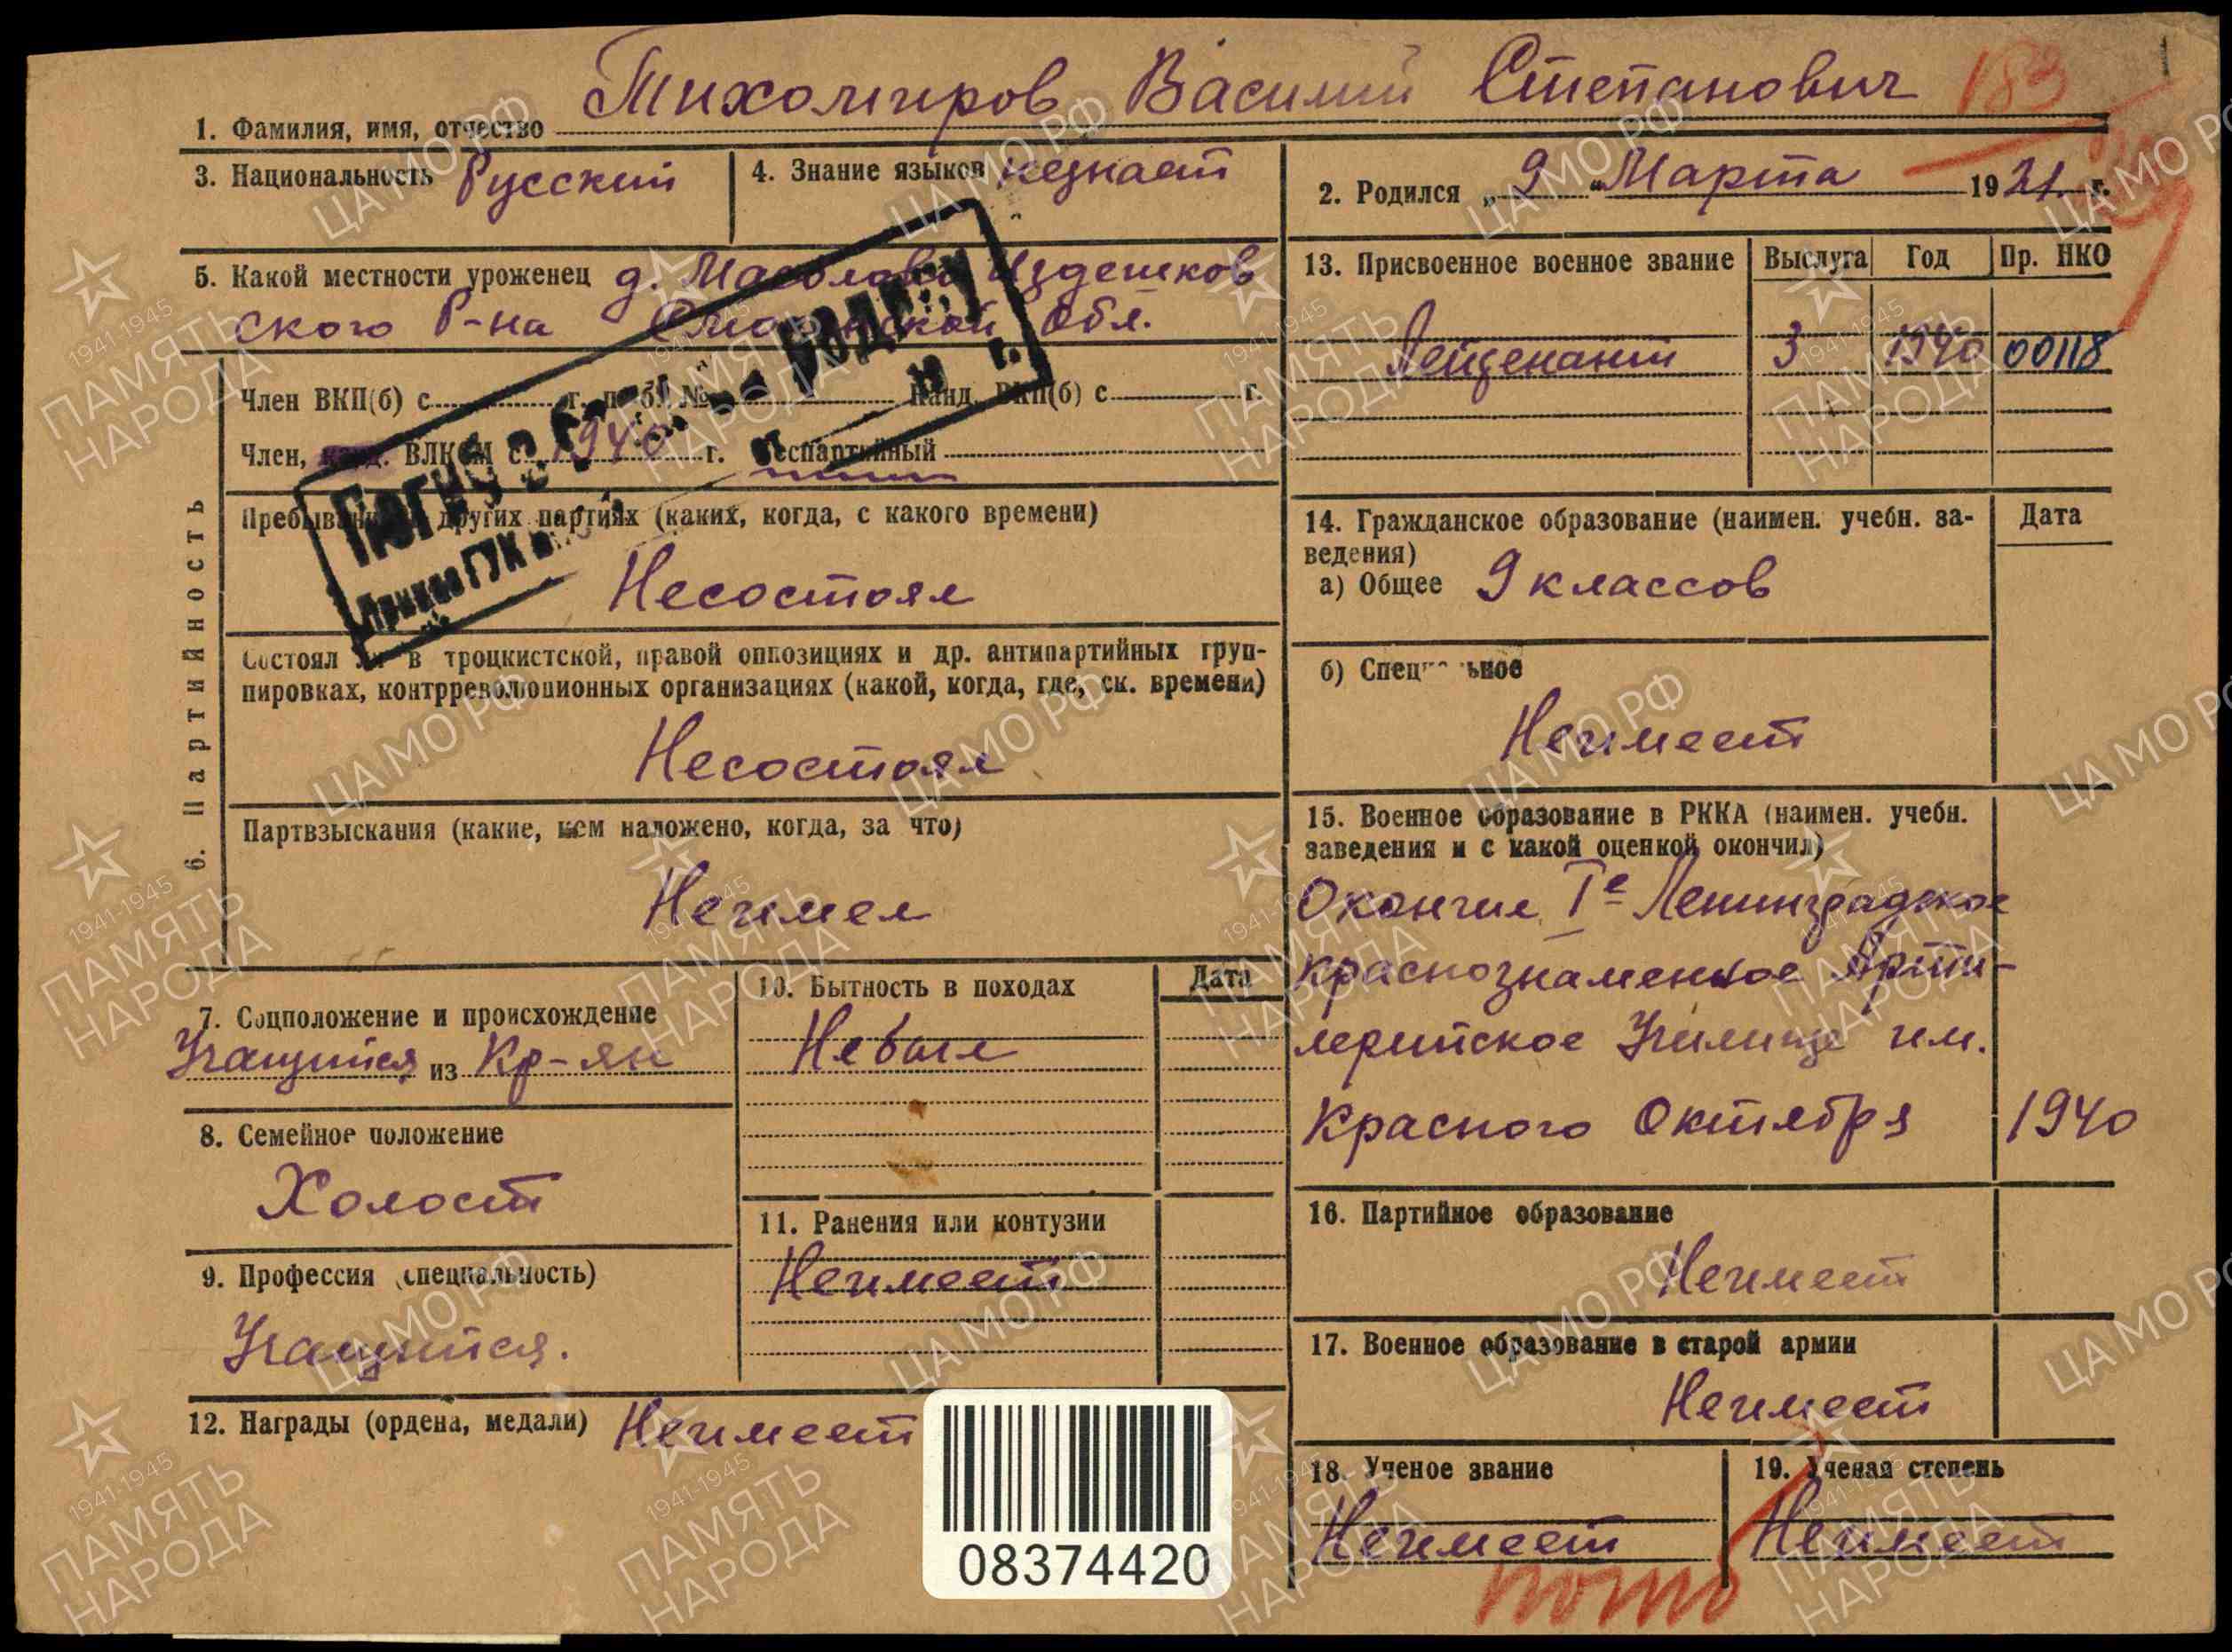 Тихомиров Василий Степанович
183
1. Фамилия, имя, отчество
3. Национальность Русский
4. Знание языков незнает
2. Родился „ 9 “ Марта 1921 г.
5. Какой местности уроженец д. Издешков
ского Р-на Смоленской Обл.
13. Присвоенное военное звание Выслуга Год Пр. НКО
Лейтенант 3 1940 00118
6. Партийность
Член ВКП(б) с г. п/б. № Канд. ВКП(б) с г.
Член, канд. ВЛКСМ с 1940 г. беспартийный
Погиб в боях за Родину
Приказ ГУК
Пребывание в других партиях (каких, когда, с какого времени)
Несостоял
Состоял ли в троцкистской, правой оппозициях и др. антипартийных груп-
пировках, контрреволюционных организациях (какой, когда, где, ск. времени)
Несостоял
Партвзыскания (какие, кем наложено, когда, за что)
Неимел
14. Гражданское образование (наимен. учебн. за-
ведения)
Дата
а) Общее 9 классов
б) Специальное
Неимеет
15. Военное образование в РККА (наимен. учебн.
заведения и с какой оценкой окончил)
Окончил 1е Ленинградское
Краснознаменное Арти-
лерийское Училище им.
Красного Октября 1940
7. Соцположение и происхождение
Учащийся из Кр-ян
8. Семейное положение
Холост
9. Профессия (специальность)
Учащийся.
10. Бытность в походах Дата
Небыл
11. Ранения или контузии
Неимеет
12. Награды (ордена, медали) Неимеет
16. Партийное образование
Неимеет
17. Военное образование в старой армии
Неимеет
18. Ученое звание
Неимеет
19. Ученая степень
Неимеет
08374420
ЦАМО РФ
1941-1945
ПАМЯТЬ
НАРОДА